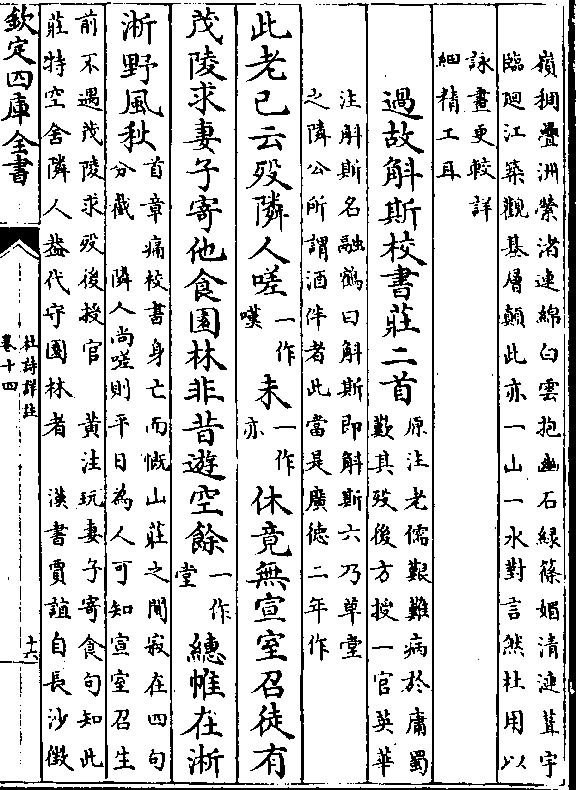 嶺稠疊洲縈渚連綿白雲抱幽石緑篠媚清漣葺宇
臨廻江築觀基層顛此亦一山一水對言然杜用以
詠畫更較詳
細精工耳
過故斛斯校書莊二首
原注老儒艱難病於庸蜀
歎其歿後方授一官英華
注斛斯名融鶴曰斛斯即斛斯六乃草堂
之隣公所謂酒伴者此當是廣德二年作
此老已云歿隣人嗟
一作
嘆
未
一作
亦
休竟無宣室召徒有
茂陵求妻子寄他食園林非昔遊空餘
一作
堂
繐帷在淅
淅野風秋
首章痛校書身亡而慨山莊之閒寂在四句
分截 隣人尚嗟則平日為人可知宣室召生
前不遇茂陵求歿後授官 黃注玩妻子寄食句知此
莊特空舍隣人葢代守園林者 漢書賈誼自長沙徴
欽定四庫全書
杜詩詳註
卷十四
十六